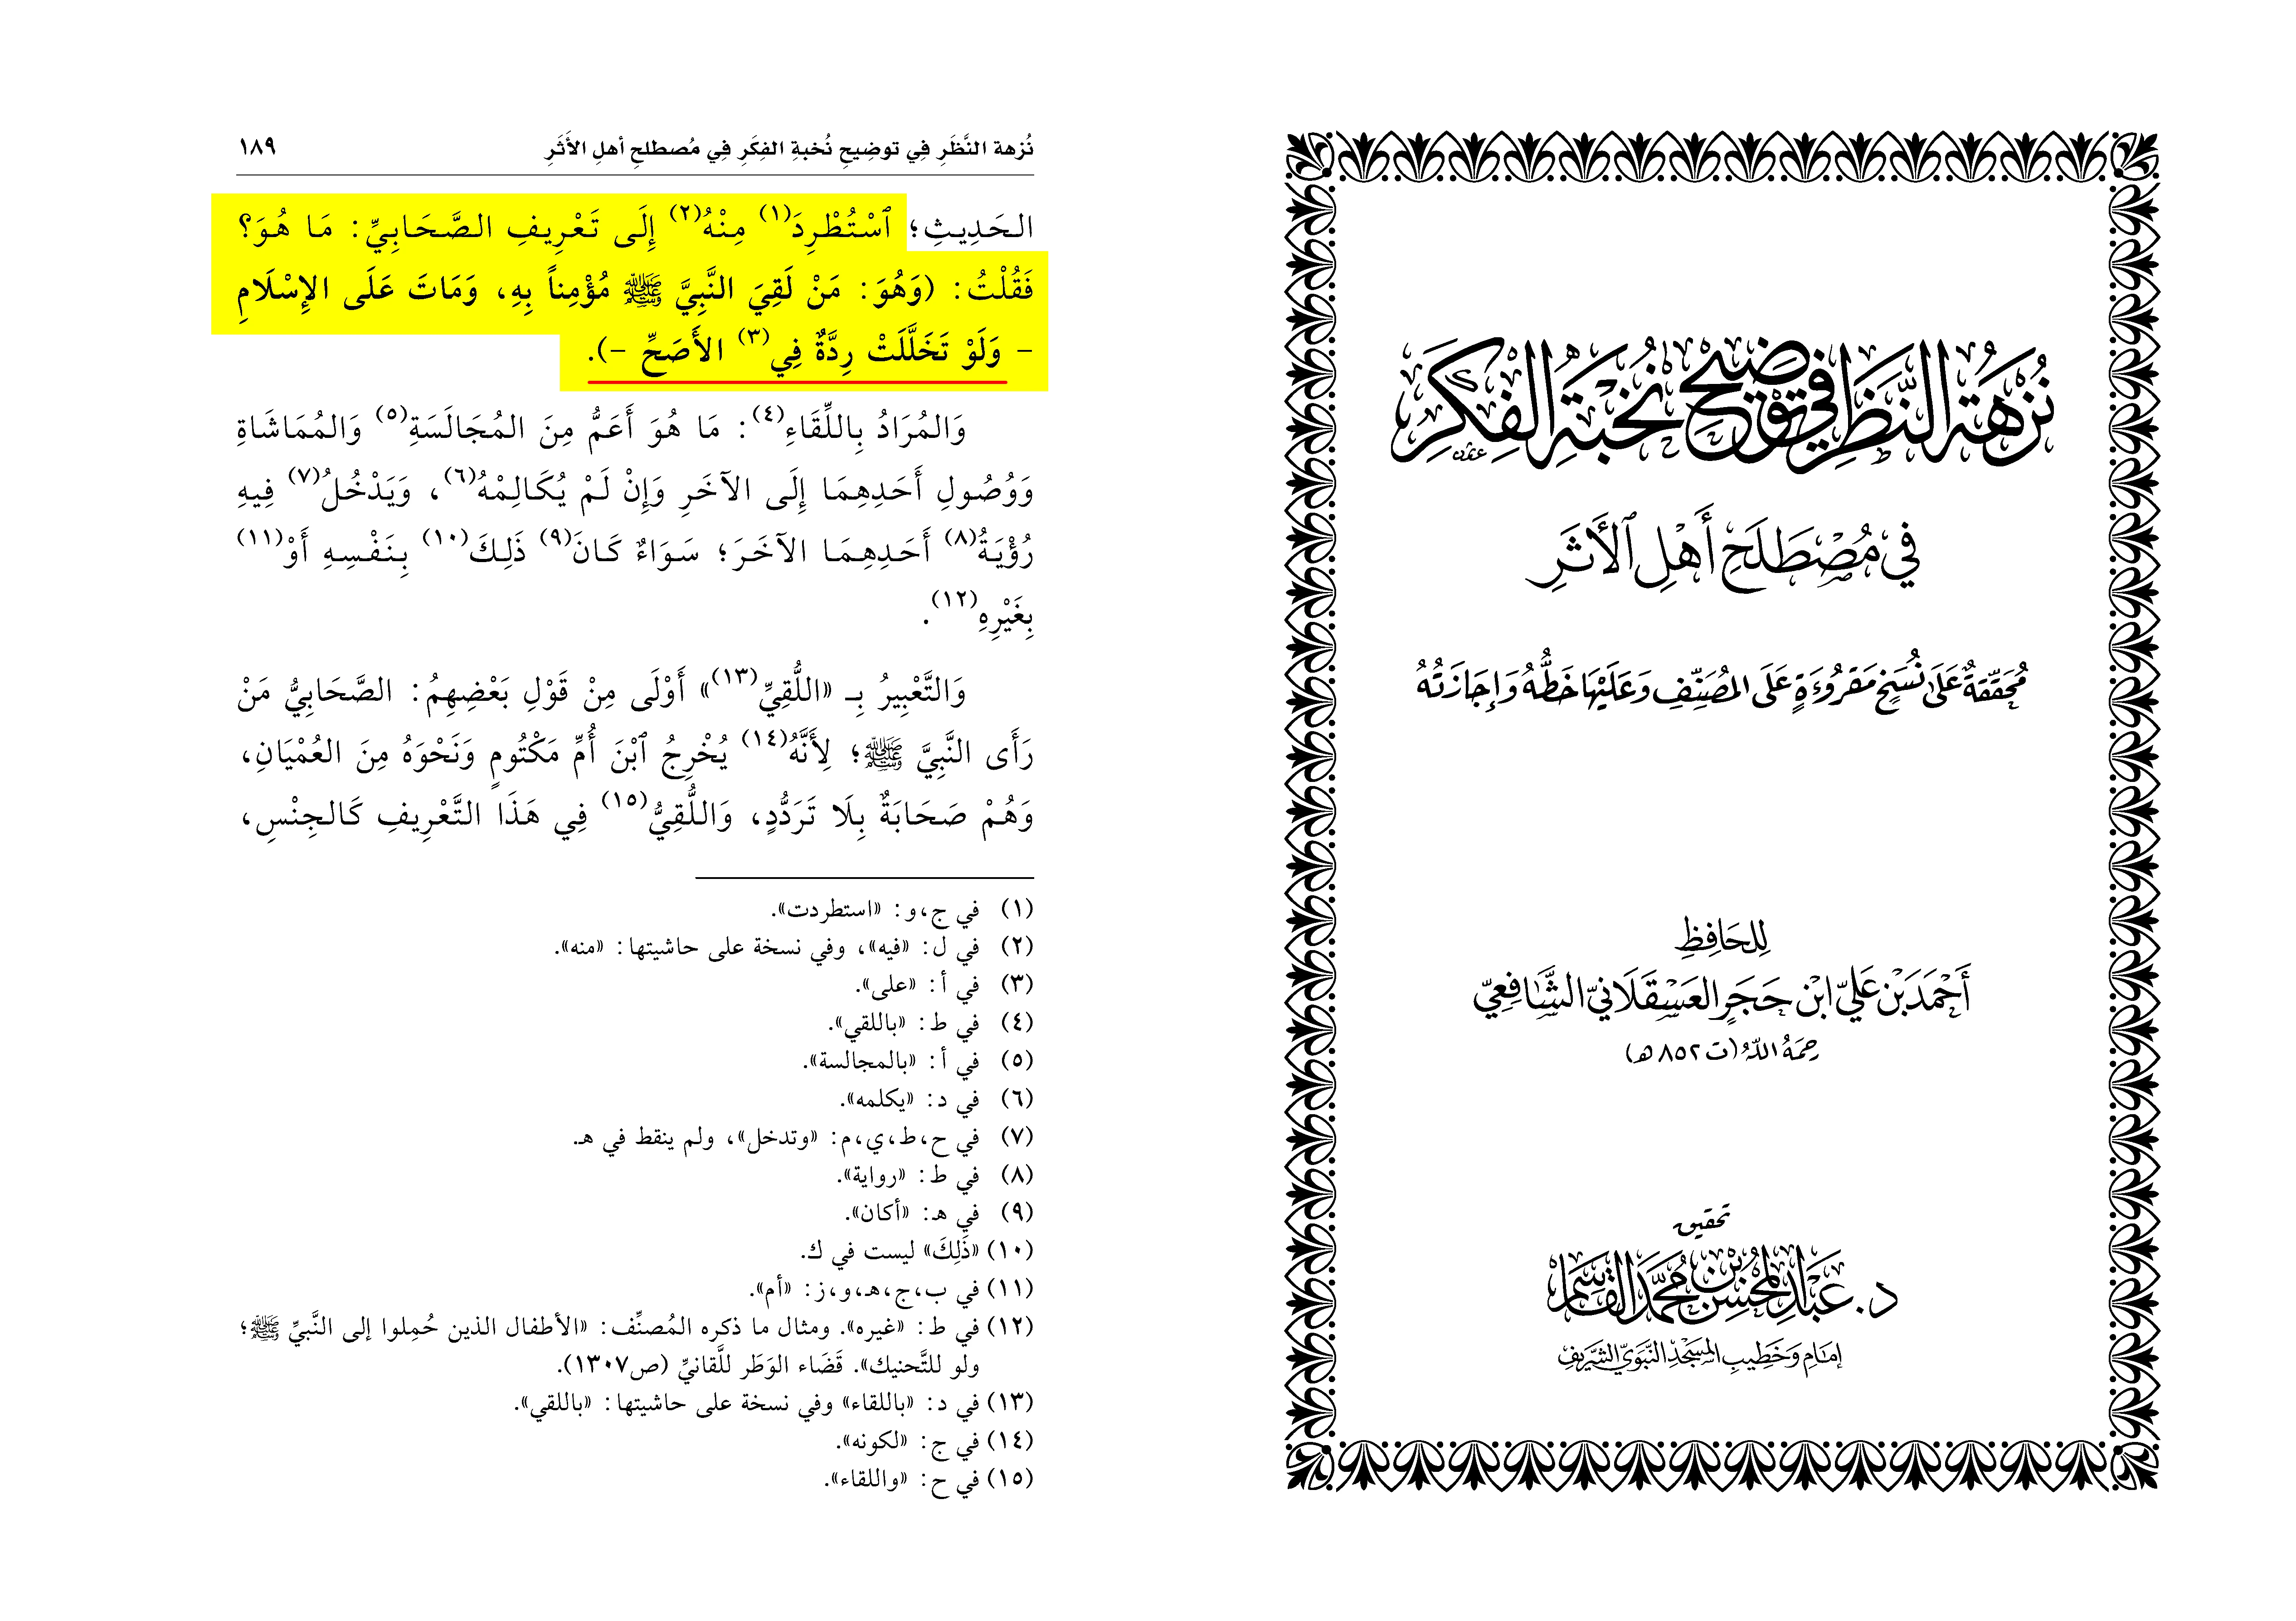 نُزْهَةُ النَّظَرِ فِي تَوْضِيحِ نُخْبَةِ الْفِكَرِ
فِي مُصْطَلَحِ أَهْلِ ٱلْأَثَرِ
مُحَقَّقَةٌ عَلَى نُسَخٍ مَقْرُوءَةٍ عَلَى المُصَنِّفِ وَعَلَيْهَا خَطُّهُ وَإِجَازَتُهُ
لِلحَافِظِ
أَحْمَدَ بْنِ عَلِيّ ابْنِ حَجَرٍ العَسْقَلَانِيّ الشَّافِعِيّ
رَحِمَهُ اللهُ (ت ٨٥٢ هـ)
تحقيق
د. عَبْدِ الْمُحْسِنِ بْنِ مُحَمَّدِ القَاسِمِ
إِمَامِ وَخَطِيبِ المَسْجِدِ النَّبَوِيّ الشَّرِيفِ
نُزهة النَّظَرِ فِي توضِيحِ نُخبةِ الفِكَرِ فِي مُصطلحِ أهلِ الأَثَرِ ١٨٩
الحَدِيثِ؛ ٱسْتُطْرِدَ(١) مِنْهُ(٢) إِلَى تَعْرِيفِ الصَّحَابِيِّ: مَا هُوَ؟
فَقُلْتُ: (وَهُوَ: مَنْ لَقِيَ النَّبِيَّ ﷺ مُؤْمِناً بِهِ، وَمَاتَ عَلَى الإِسْلَامِ
- وَلَوْ تَخَلَّلَتْ رِدَّةٌ فِي(٣) الأَصَحِّ -).
وَالمُرَادُ بِاللِّقَاءِ(٤): مَا هُوَ أَعَمُّ مِنَ المُجَالَسَةِ(٥) وَالمُمَاشَاةِ
وَوُصُولِ أَحَدِهِمَا إِلَى الآخَرِ وَإِنْ لَمْ يُكَالِمْهُ(٦)، وَيَدْخُلُ(٧) فِيهِ
رُؤْيَةُ(٨) أَحَدِهِمَا الآخَرَ؛ سَوَاءٌ كَانَ(٩) ذَلِكَ(١٠) بِنَفْسِهِ أَوْ(١١)
بِغَيْرِهِ(١٢).
وَالتَّعْبِيرُ بِـ «اللُّقِيِّ(١٣)» أَوْلَى مِنْ قَوْلِ بَعْضِهِمُ: الصَّحَابِيُّ مَنْ
رَأَى النَّبِيَّ ﷺ؛ لِأَنَّهُ(١٤) يُخْرِجُ ٱبْنَ أُمِّ مَكْتُومٍ وَنَحْوَهُ مِنَ العُمْيَانِ،
وَهُمْ صَحَابَةٌ بِلَا تَرَدُّدٍ، وَاللُّقِيُّ(١٥) فِي هَذَا التَّعْرِيفِ كَالجِنْسِ،
(١) في ج،و: «استطردت».
(٢) في ل: «فيه»، وفي نسخة على حاشيتها: «منه».
(٣) في أ: «على».
(٤) في ط: «باللقي».
(٥) في أ: «بالمجالسة».
(٦) في د: «يكلمه».
(٧) في ح،ط،ي،م: «وتدخل»، ولم ينقط في هـ.
(٨) في ط: «رواية».
(٩) في هـ: «أكان».
(١٠) «ذَلِكَ» ليست في ك.
(١١) في ب،ج،هـ،و،ز: «أم».
(١٢) في ط: «غيره». ومثال ما ذكره المُصنِّف: «الأطفال الذين حُمِلوا إلى النَّبيِّ ﷺ؛
ولو للتَّحنيك». قَضَاء الوَطَر للَّقانيِّ (ص١٣٠٧).
(١٣) في د: «باللقاء» وفي نسخة على حاشيتها: «باللقي».
(١٤) في ج: «لكونه».
(١٥) في ح: «واللقاء».